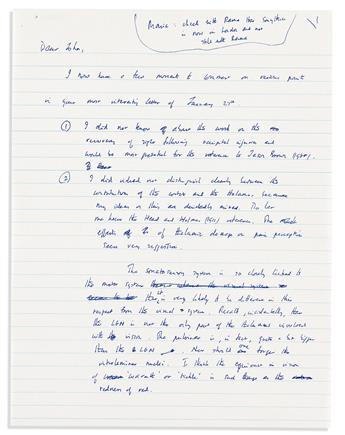 check with
is now in London and not
1
Dear John,
I now have a few moments to comment on various points
in your most interesting letter of January 27th.
① I did not know of the work on the
recovery of sight following occipital injuries and
would be most grateful for the reference to
② I did indeed not distinguish clearly between the
contribution of the cortex and the thalamus, because
my ideas on this are decidedly mixed. Do let
me have the Head and Holmes (1911) reference. The
effects of thalamic damage on pain perception
seem very suggestive.
The somatosensory system is so closely linked to
the motor system
that it is very likely to be different in this
respect from the visual system. Recall, incidentally, that
the LGN is not the only part of the thalamus involved
with vision. The pulvinar is, in fact, quite a bit bigger
than the LGN. Nor should one forget the
intralaminar nuclei. I think the equivalent in vision
of 'warmth' or 'tickle' is such things as the
redness of red.